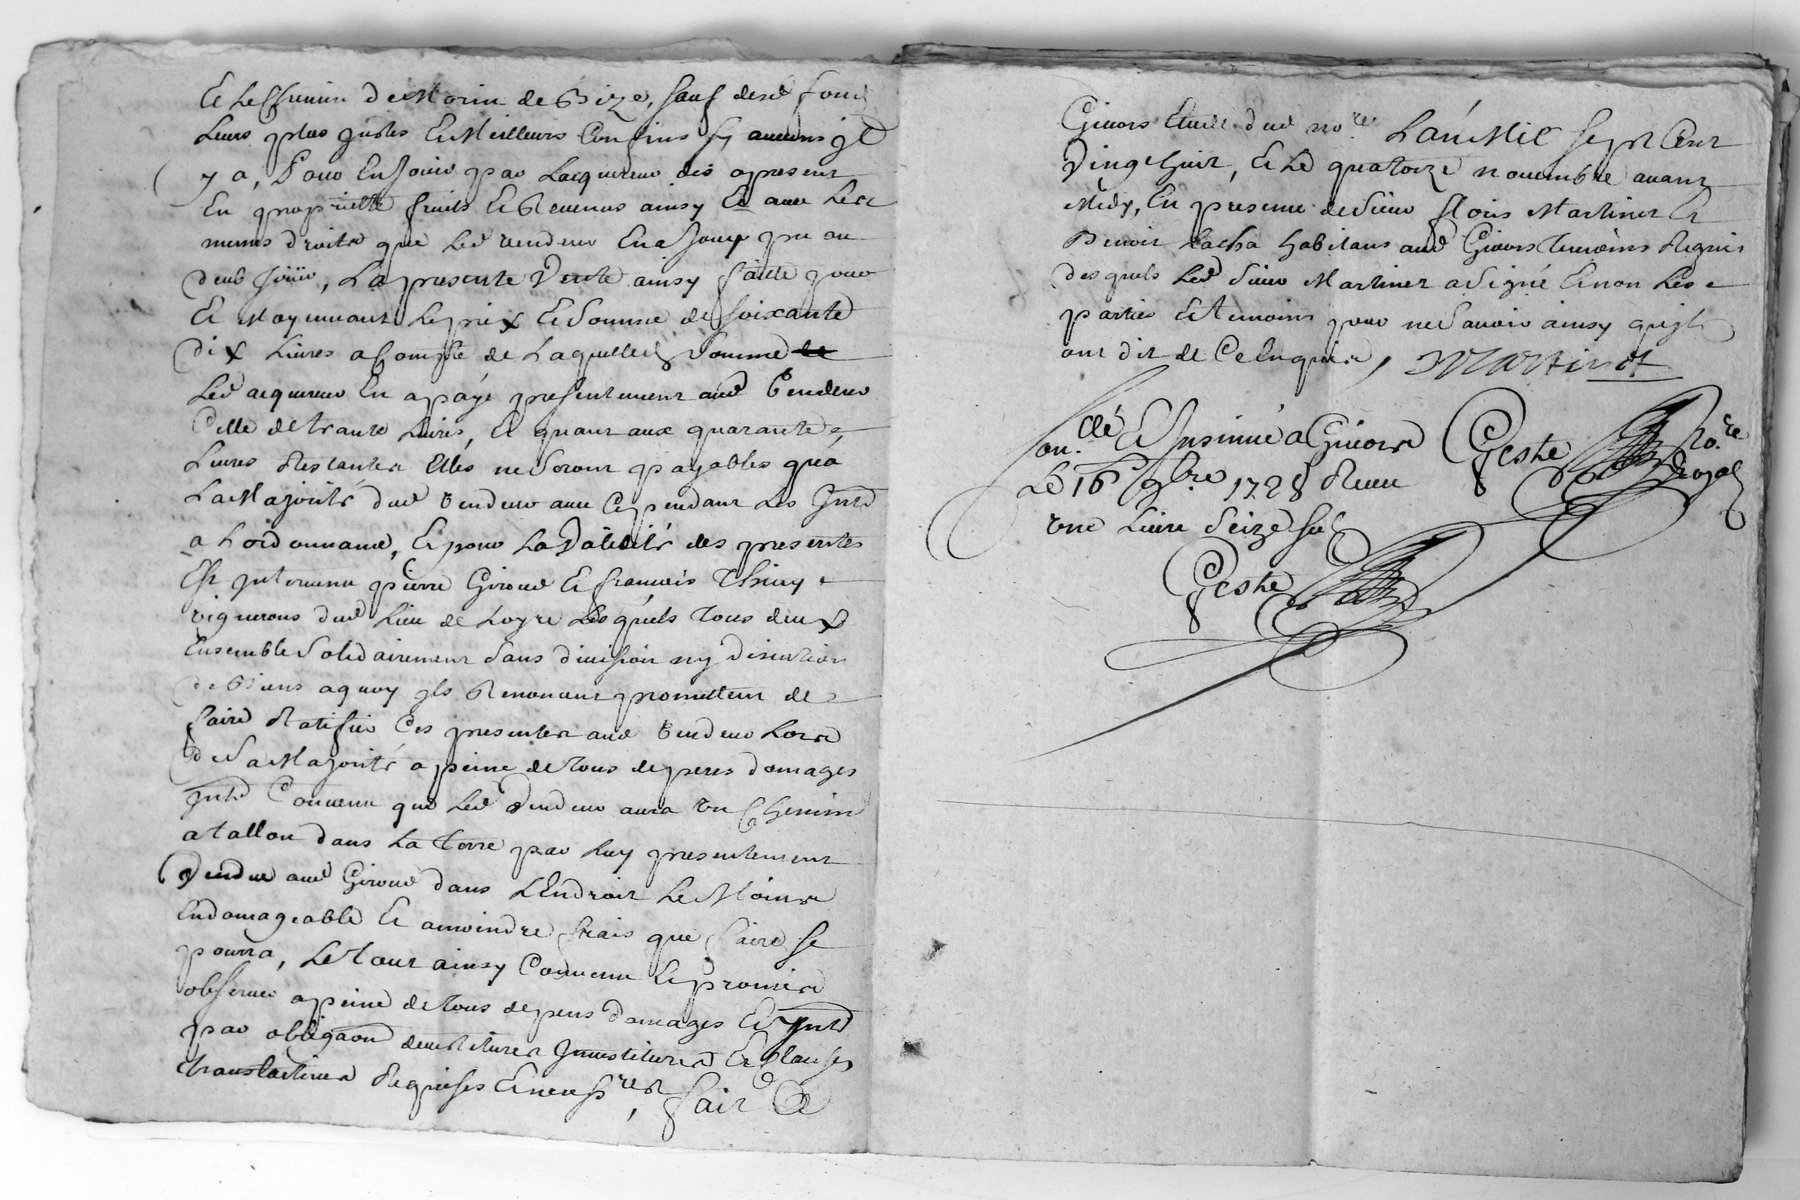 Et le chemin de Morin de Bize, sauf desd fonds
Leurs plus justes Et Meilleurs Confins sy aucuns y
y a, Pour En Jouir par Lacquereur dès apresent
En proprietté fruits Et Revenus ainsy Et avec Les
mêmes droits que Led vendeur En a Jouy pu ou
deub Joüir, La presente Vente ainsy faitte pour
Et Moyennant Le prix Et Somme de Soixante
dix Livres a Compte de Laquelle Somme
Led acquereur En a payé presentement aud Vendeur
Celle de trante Livres, Et quant aux quarante
Livres Restantes Elles ne Seront payables qua
La Majorité dud Vendeur avec Cependant Les Jnts
a Lordonnance, Et pour La Validité des presentes
Est Jntervenu pierre Giroud Et francois
vignerons dud Lieu de Loyre Lesquels tous deux
Ensemble Solidairement Sans division ny discution
de Biens a quoy jls Renoncent promettent de
faire Ratifier Ces presentes aud Vendeur Lors
de Sa Majorité a peine de tous depens domages
Jnts Convenu que Led Vendeur aura un Chemin
a tallon dans La terre par Luy presentement
Vendue aud Giroud dans LEndroit Le Moins
Endomageable Et amoindre frais que faire se
pourra, Le tout ainsy Convenu Le promis
observer a peine de tous depens domages Et Jnts
par obligaon devestitures Jnvestitures Et Clauses
translatives Requises Et necessres, fait Et
Givors Etude dud nore Lan Mil sept Cent
Vingt huit, Et Le quatorze novembre avant
Midy, En presence de Sieur Martinet Et
Benoit habitans aud Givors temoins Requis
desquels Led Sieur Martinet a Signé Et non Les
parties Et temoin pour ne Savoir ainsy quils
ont dit de Ce Enquis, Martinet
Conllé Et Jnsinué a Givors Geste No.re
Le 16 9bre 1728 Receu royal
une Livre Seize sols
Geste